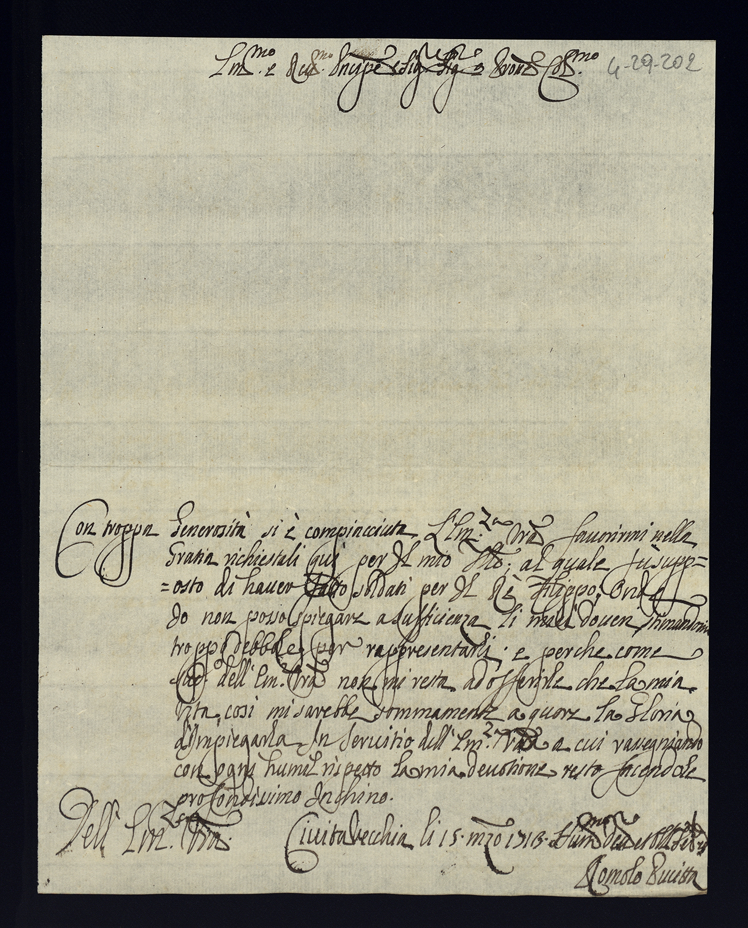 Em.mo e Rev.mo Prñpe Sig.re Sig.re e Pron Col.mo 4-29-202
Con troppa Generosità si è compiacciuta L'Em.za Vra favorirmi nella
Gratia richiestali qui per Il mio, al quale fù supp=
=osto di haver fatto soldati per Il Rè Filippo; Onde
Io non posso spiegare a sufficienza li miei doveri
troppo debbole per rappresentarli; e perche come
dell'Em.za Vra non mi resta ad offerirle che la mia
Vita, così mi sarebbe sommamente a quore la Gloria
d'impiegarla In servitio dell'Em.za Vra a cui rassegnando
con ogni humil rispetto la mia devotione resto facendole
profondissimo Inchino.
Dell' Em.za Vra Civita Vecchia li 15. mzo 1713. Hum.mo
Romolo